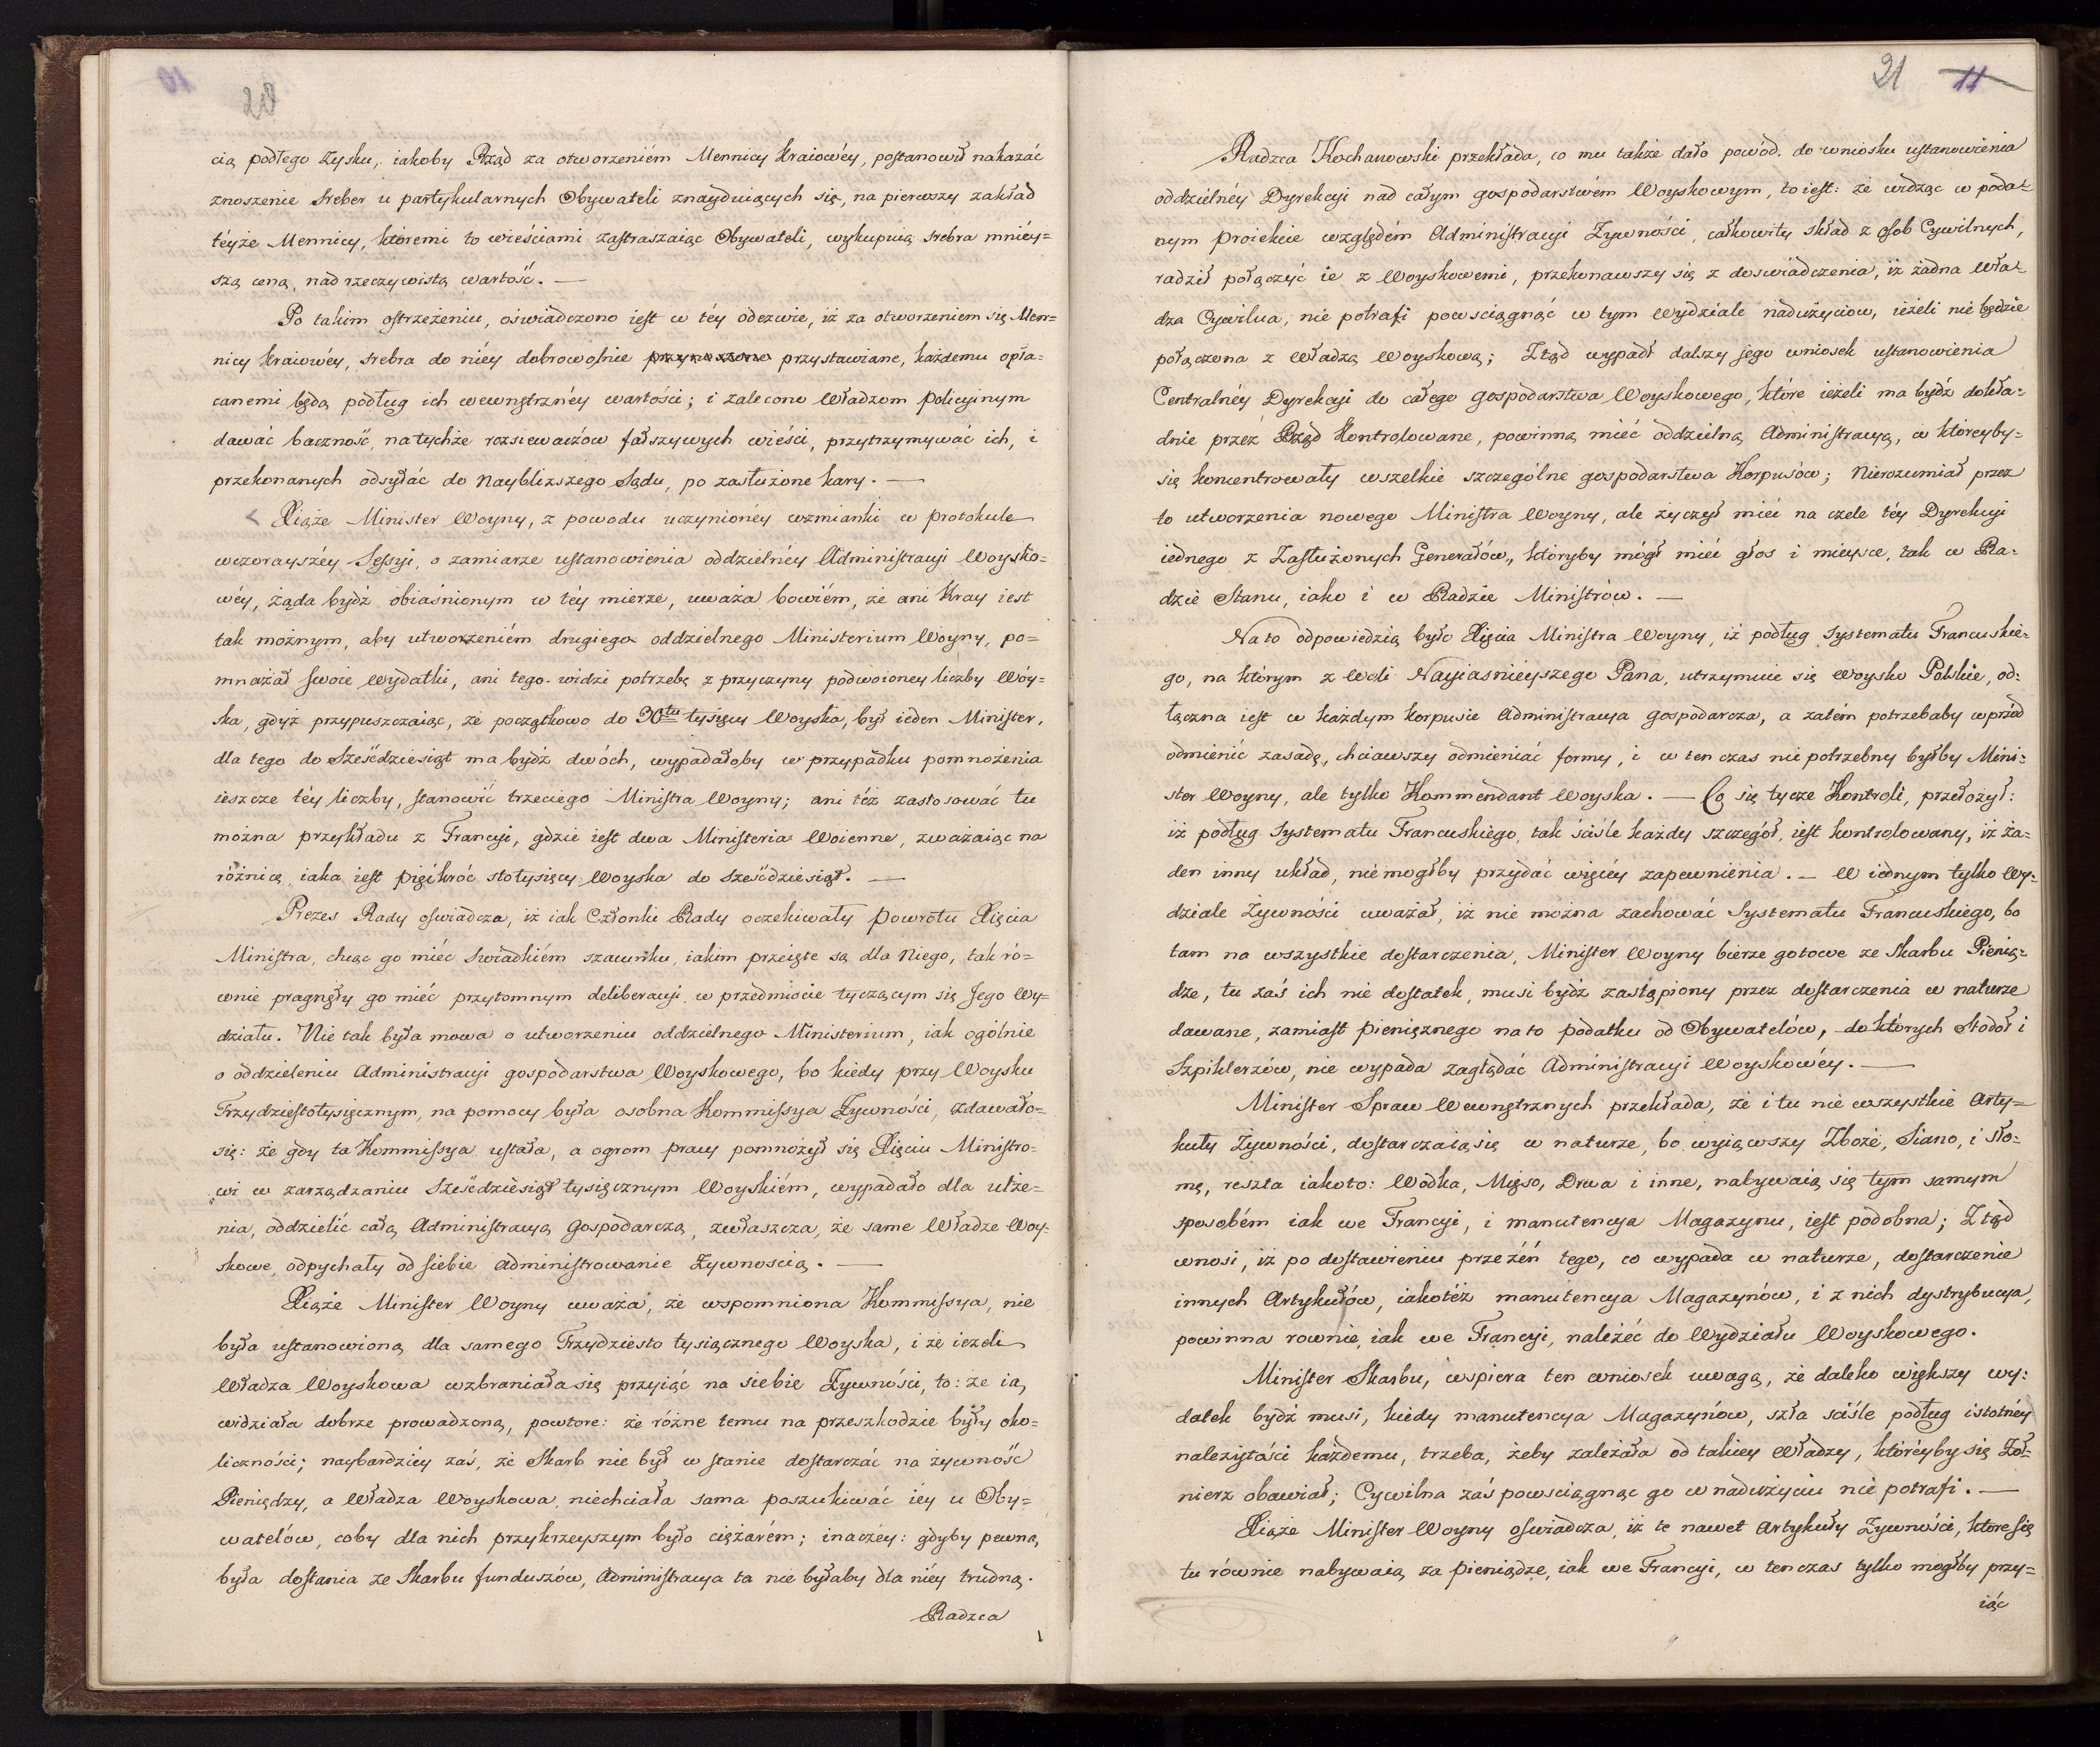 20
cią podłego zysku, iakoby Rząd za otworzeniém Mennicy Kraiowéy, postanowił nakazać
znoszenie sreber u partykularnych Obywateli znayduiących się, na pierwszy zakład
téyże Mennicy, któremi to wieściami zastraszaiąc Obywateli, wykupuią srebra mniéy=
szą ceną, nad rzeczywistą wartość. —
Po takim ostrzeżeniu, oświadczono iest w téy odezwie, iż za otworzeniem się Men=
nicy Kraiowéy, srebra do niéy dobrowolnie przynoszone przystawiane, każdemu opła=
canemi będą podług ich wewnętrznéy wartości; i zalecono Władzom Policyinym
dawać baczność, na tychże rozsiewaczów fałszywych wieści, przytrzymywać ich, i
przekonanych odsyłać do Naybliższego Sądu, po zasłużone kary. —
Xiąże Minister Woyny, z powodu uczynionéy wzmianki w protokule
wczorayszéy Sessyi, o zamiarze ustanowienia oddzielnéy Administracyi Woysko=
wéy, żąda bydź obiaśnionym w téy mierze, uważa bowiém, że ani Kray iest
tak możnym, aby utworzeniém drugiego oddzielnego Ministerium Woyny, po=
mnażał swoie wydatki, ani tego widzi potrzebę z przyczyny podwoioney liczby Woy=
ska, gdyż przypuszczaiąc, że początkowo do 30tu tysięcy Woyska, był ieden Minister,
dla tego do sześćdziesiąt ma bydź dwóch, wypadałoby w przypadku pomnożenia
ieszcze téy liczby, stanowić trzeciego Ministra Woyny; ani téż zastosować tu
można przykładu z Francyi, gdzie iest dwa Ministeria Woienne, zważaiąc na
różnicę, iaka iest pięćkroć stotysięcy Woyska do sześćdziesiąt. —
Prezes Rady oświadcza, iż iak Członki Rady oczekiwały powrotu Xięcia
Ministra, chcąc go mieć świadkiém szacunku, iakim przeięte są dla Niego, tak ró=
wnie pragnęły go mieć przytomnym deliberacyi w przedmiocie tyczącym się Jego Wy=
działu. Nie tak była mowa o utworzeniu oddzielnego Ministerium, iak ogólnie
o oddzieleniu Administracyi gospodarstwa Woyskowego, bo kiedy przy Woysku
Trzydziestotysięcznym, na pomocy była osobna Kommissya Żywności, zdawało=
się: że gdy ta Kommissya ustała, a ogrom pracy pomnożył się Xięciu Ministro=
wi w zarządzaniu Sześćdziesiąt tysięcznym Woyskiém, wypadało dla ulże=
nia, oddzielić całą Administracyą gospodarczą, zwłaszcza, że same Władze Woy=
skowe, odpychały od siebie administrowanie Żywnością. —
Xiąże Minister Woyny uważa, że wspomniona Kommissya, nie
była ustanowioną dla samego Trzydziesto tysiącznego Woyska, i że ieżeli
Władza Woyskowa wzbraniała się przyiąć na siebie Żywności, to: że ią
widziała dobrze prowadzoną, powtore: że różne temu na przeszkodzie były oko=
liczności; naybardziéy zaś, że Skarb nie był w stanie dostarczać na żywność
Pieniędzy, a Władza Woyskowa, niechciała sama poszukiwać iey u Oby=
watelów, coby dla nich przykrzeyszym było ciężarém; inaczéy: gdyby pewną
była dostania ze Skarbu funduszów, Administracya ta nie byłaby dla niéy trudną.
Radzca
21 11
Radzca Kochanowski przekłada, co mu także dało powód do wniosku ustanowienia
oddzielnéy Dyrekcyi nad całym gospodarstwém Woyskowym, to iest: że widząc w poda=
nym proiekcie względém Administracyi Żywności, całkowity skład z osob Cywilnych,
radził połączyć ie z Woyskowemi, przekonawszy się z doświadczenia, iż żadna Wła=
dza Cywilna, nie potrafi powściągnąć w tym Wydziale nadużyciow, ieżeli nie będzie
połączona z Władzą Woyskową; Ztąd wypadł dalszy jego wniosek ustanowienia
Centralnéy Dyrekcyi do całego gospodarstwa Woyskowego, które ieżeli ma bydź dokła=
dnie przez Rząd Kontrolowane, powinna mieć oddzielną Administracyą, w któreyby=
się koncentrowały wszelkie szczególne gospodarstwa Korpusów; Nierozumiał przez
to utworzenia nowego Ministra Woyny, ale życzył mieć na czele téy Dyrekcyi
iednego z Zasłużonych Generałów, któryby mógł mieć głos i mieysce, tak w Ra=
dzie Stanu, iako i w Radzie Ministrów. —
Na to odpowiedzią było Xięcia Ministra Woyny, iż podług Systematu Francuskie=
go, na którym z Woli Nayiaśnieyszego Pana, utrzymuie się Woysko Polskie, od=
łączna iest w każdym korpusie Administracya gospodarcza, a zatém potrzebaby wprzód
odmienić zasadę, chciawszy odmieniać formy, i w ten czas nie potrzebny byłby Mini=
ster Woyny, ale tylko Kommendant Woyska. — Co się tycze Kontroli, przełożył:
iż podług Systematu Francuskiego, tak ściśle każdy szczegół, iest kontrolowany, iż ża=
den inny układ, niemogłby przydać więcéy zapewnienia. — W iednym tylko Wy=
dziale Żywności uważał, iż nie można zachować Systematu Francuskiego, bo
tam na wszystkie dostarczenia, Minister Woyny bierze gotowe ze Skarbu Pienią=
dze, tu zaś ich nie dostatek, musi bydź zastąpiony przez dostarczenia w naturze
dawane, zamiast pieniężnego na to podatku od Obywatelów, do których Stodół i
Szpiklerzów, nie wypada zaglądać Administracyi Woyskowéy. —
Minister Spraw Wewnętrznych przekłada, że i tu nie wszystkie Arty=
kuły Żywności, dostarczaią się w naturze, bo wyiąwszy Zboże, Siano, i sło=
mę, reszta iakoto: Wódka, Mięso, Drwa i inne, nabywaią się tym samym
sposobém iak we Francyi, i manutencya Magazynu, iest podobna; Ztąd
wnosi, iż po dostawieniu przezéń tego, co wypada w naturze, dostarczenie
innych Artykułów, iakotéż manutencya Magazynów, i z nich dystrybucya,
powinna rownie, iak we Francyi, należéć do Wydziału Woyskowego.
Minister Skarbu, wspiera ten wniosek uwagą, że daleko większy wy=
datek bydź musi, kiedy manutencya Magazynów, szła ściśle podług istotnéy
należytości każdemu, trzeba, żeby zależała od takiey Władzy, któréyby się Żoł=
nierz obawiał; Cywilna zaś powściągnąc go w nadużyciu nie potrafi. —
Xiąże Minister Woyny oświadcza, iż te nawet Artykuły Żywności, które się
tu równie nabywaią za pieniądze, iak we Francyi, w ten czas tylko mogłby przy=
iąć